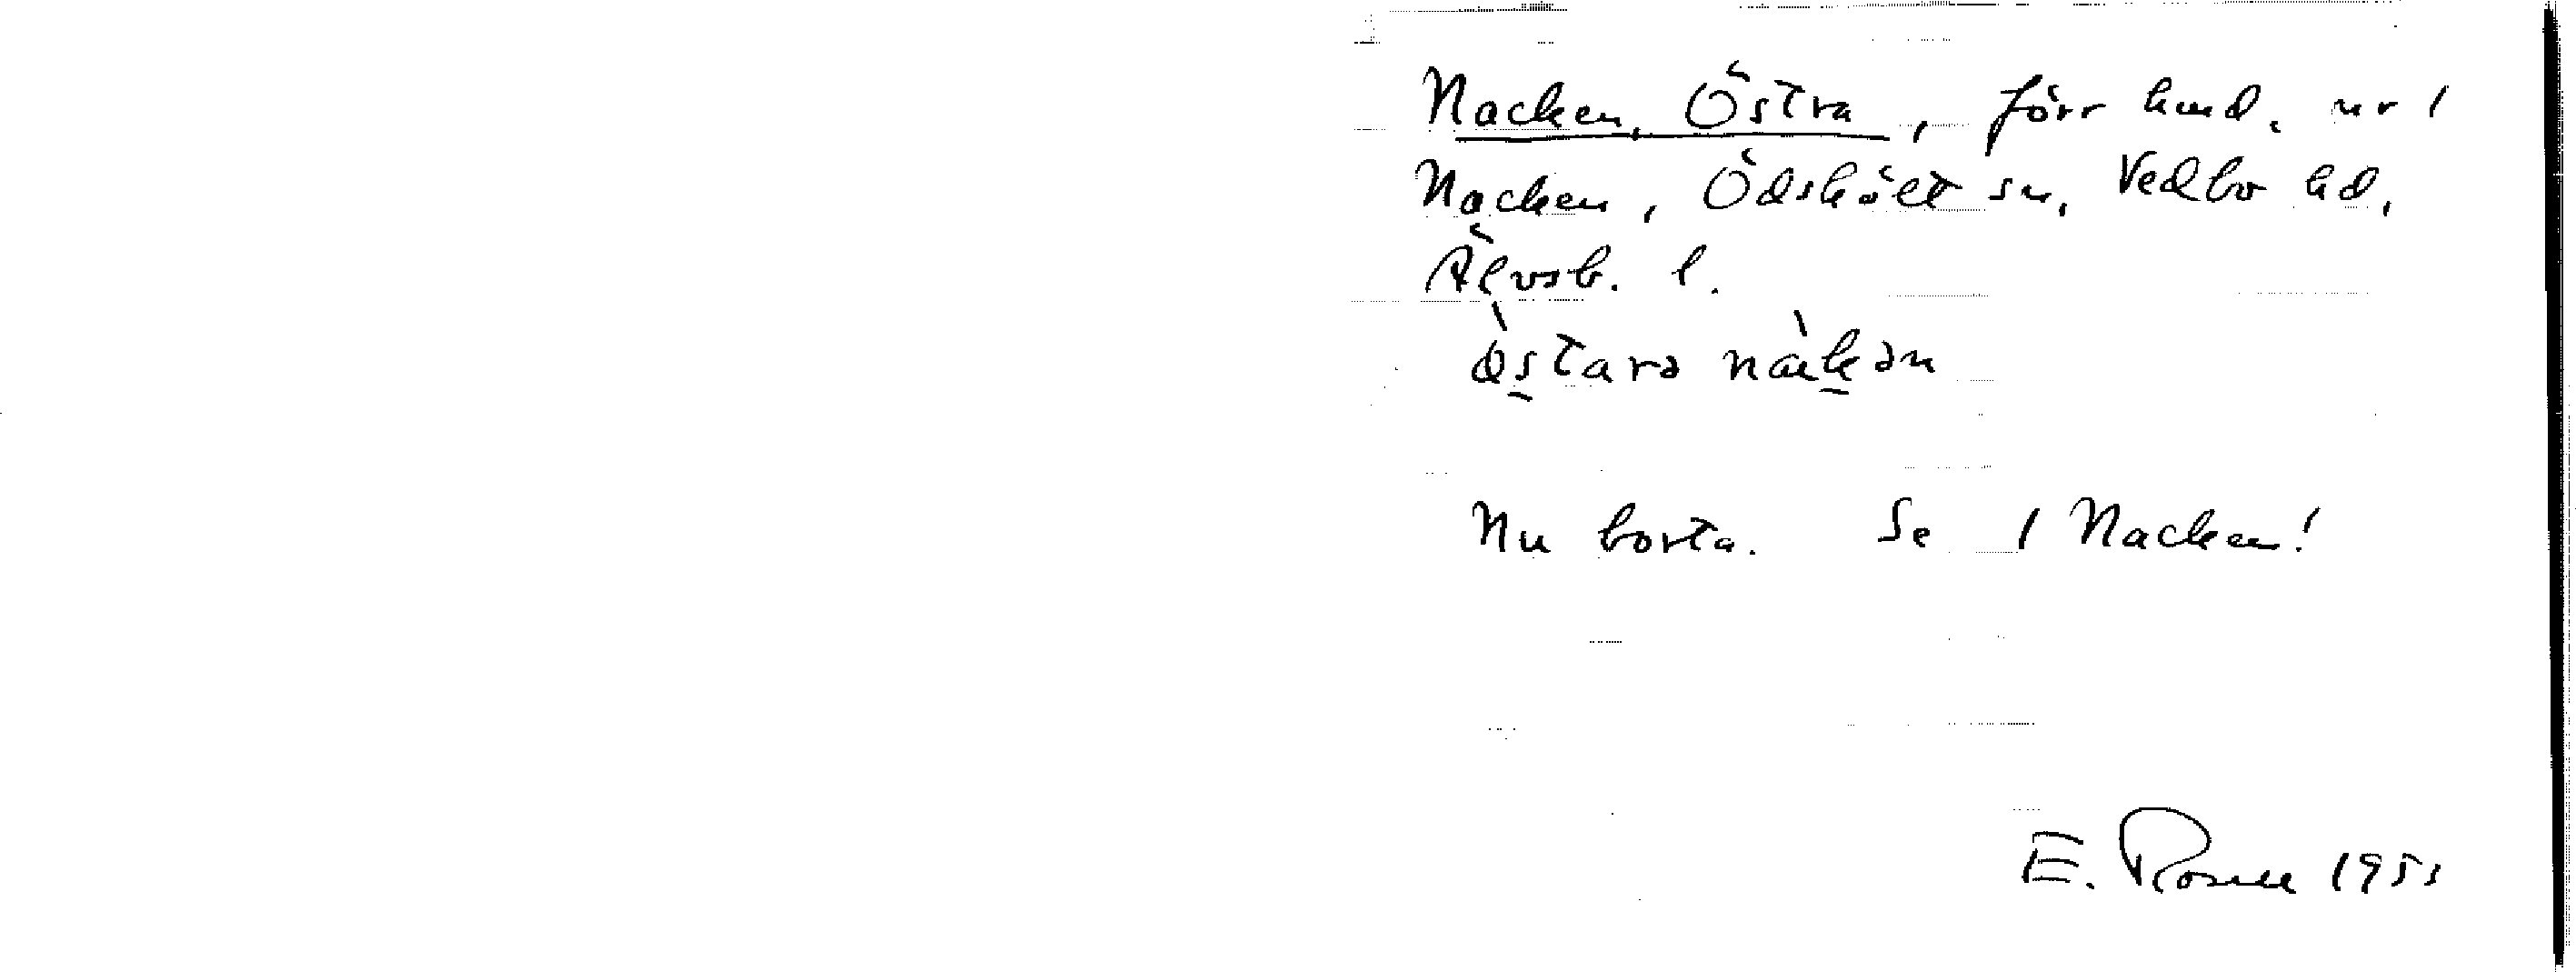 Nacken, Östra, förr hmd. nr 1
Nacken, Ödskölt sn, Vedbo hd,
Älvsb. l.
ò̀stara nàkən
Nu borta. Se 1 Nacken!
E. Rosell 1951